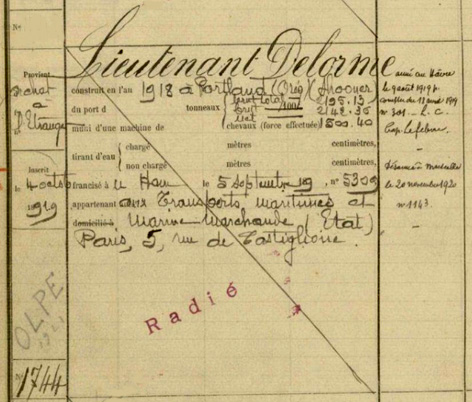 N°
Lieutenant Delorme
Provient
achat
à
l'Etranger
construit en l'an 1918 à Portland (Oreg)
du port d tonneaux
muni d'une machine de chevaux (force effectuée) 500.40
tirant d'eau chargé mètres centimètres,
non chargé mètres centimètres,
Inscrit
le 4 octob
1919
francisé à le Havre le 5 septembre 19, n° 5309
appartenant aux Transports maritimes et
domicilié à Marine Marchande (Etat)
Paris, 5, rue de Castiglione.
armé au Havre
le 9 août 1919
n° 301
Cap. Lefebvre
Désarmé à Marseille
le 20 novembre 1920
n 1143.
Radié
OLPE
1921
N° 1744